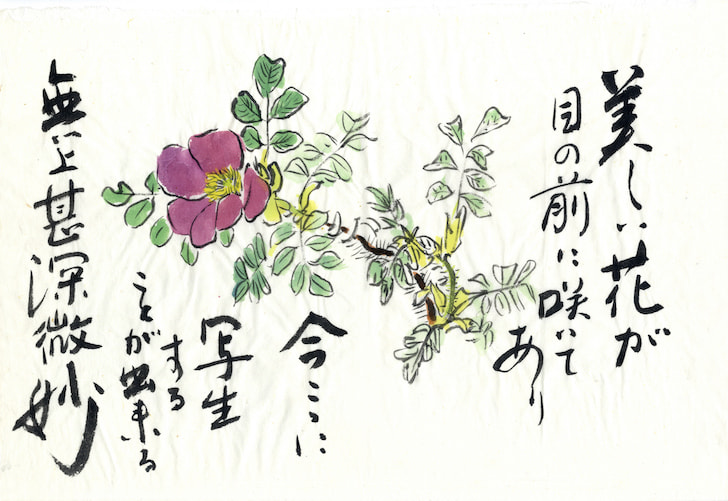 美しい花が
目の前に咲いて
あり
今ここに
写生
する
ことが出来る
無上甚深微妙